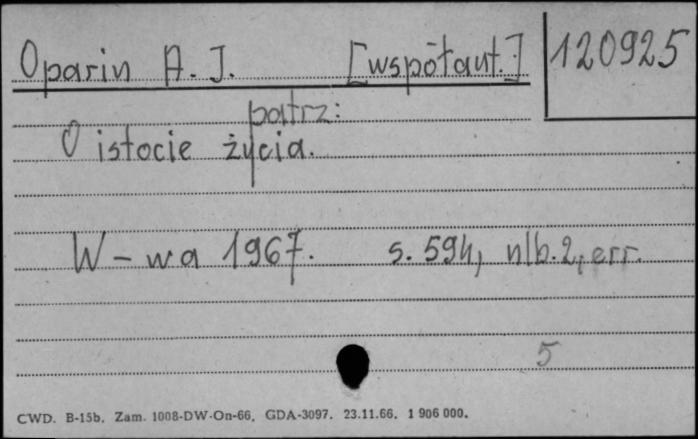 Oparin A. J. [współaut.] 120925
patrz:
O istocie życia.
W-wa 1967. s. 594, nlb. 2, err.
5
CWD. B-15b. Zam. 1008-DW-On-66. GDA-3097. 23.11.66. 1 906 000.